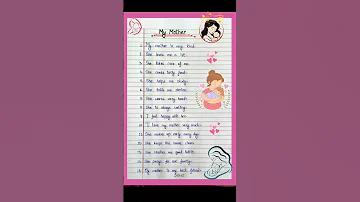 My Mother
1. My mother is very kind.
2. She loves me a lot.
3. She takes care of me.
4. She cooks tasty food.
5. She helps me study.
6. She tells me stories.
7. She works very hard.
8. She is always caring.
9. I feel happy with her.
10. I love my mother very much.
11. She wakes up early every day.
12. She keeps the house clean.
13. She teaches me good habits.
14. She prays for our family.
15. My mother is my best friend.